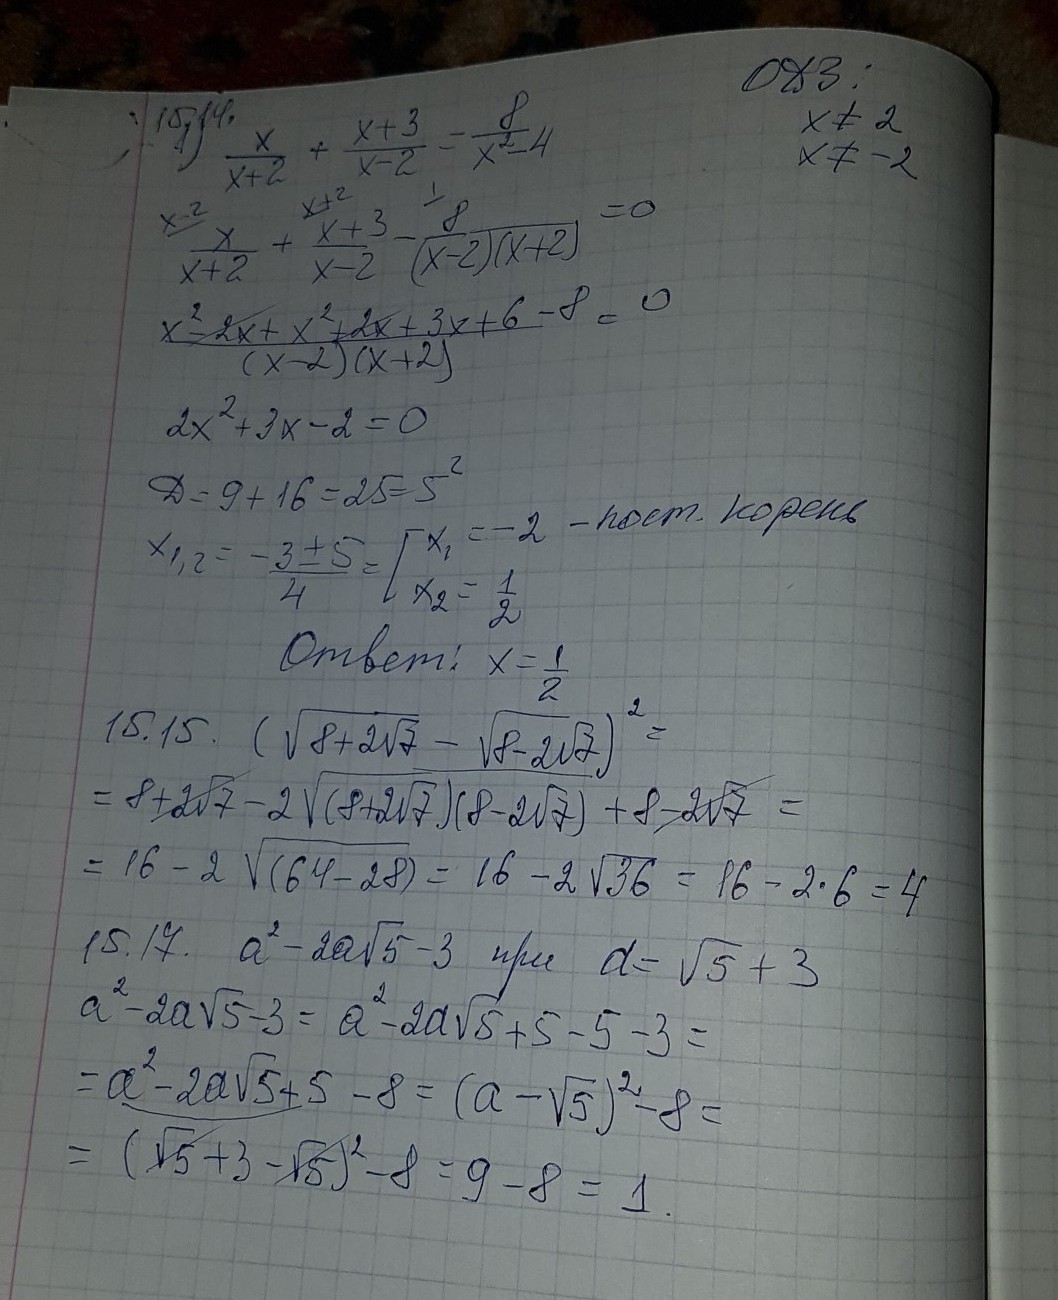 ОДЗ:
x ≠ 2
x ≠ -2
15.14.
x/(x+2) + (x+3)/(x-2) = 8/(x²-4)
x-2 x+2 1
x/(x+2) + (x+3)/(x-2) - 8/((x-2)(x+2)) = 0
(x²-2x+x²+2x+3x+6-8)/((x-2)(x+2)) = 0
2x²+3x-2=0
D=9+16=25=5²
x₁,₂ = (-3±5)/4 = [ x₁ = -2 - пост. корень
x₂ = 1/2
Ответ: x = 1/2
15.15. (√(8+2√7) - √(8-2√7))² =
= 8+2√7 - 2√((8+2√7)(8-2√7)) + 8-2√7 =
= 16 - 2√(64-28) = 16 - 2√36 = 16 - 2·6 = 4
15.17. a²-2a√5-3 при a=√5+3
a²-2a√5-3 = a²-2a√5+5-5-3=
=a²-2a√5+5-8=(a-√5)²-8=
=(√5+3-√5)²-8=9-8=1.